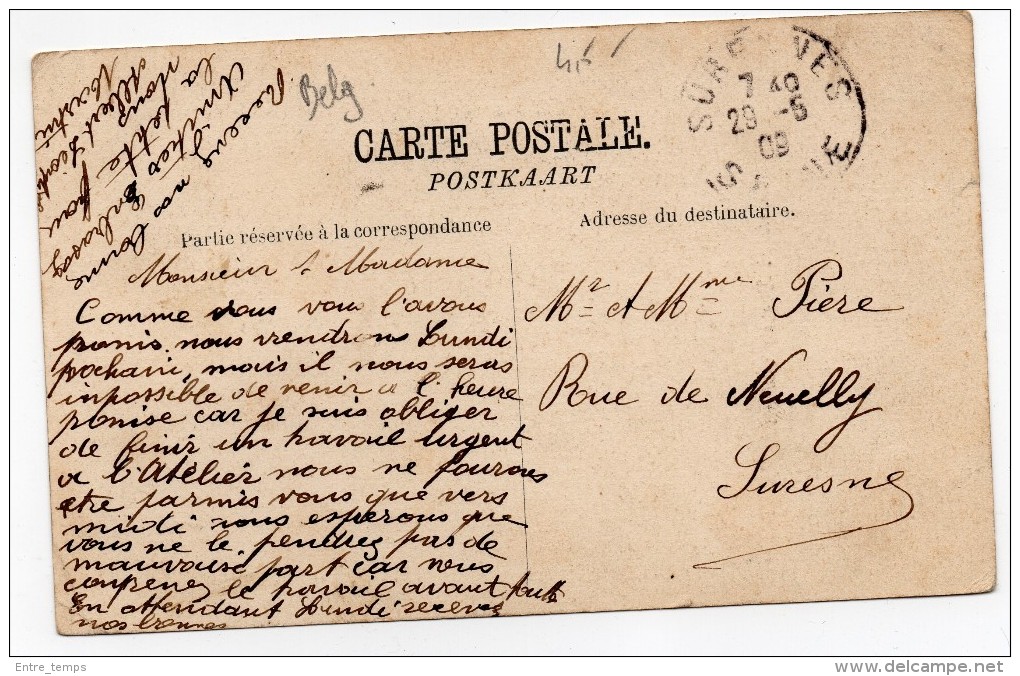 Belg.
CARTE POSTALE.
POSTKAART
SURESNES
7 40
29 -5
09
SEINE
Partie réservée à la correspondance
Adresse du destinataire.
Monsieur & Madame
Comme nous vous l'avons
promis nous viendrons Lundi
prochain, mais il nous seras
inpossible de venir a l'heure
promise car je suis obliger
de finir un travail urgent
a l'Atelier nous ne pourons
etre parmis vous que vers
midi nous esperons que
vous ne le pendrez pas de
mauvaise part car vous
conpenez le travail avant tout
En Attendant Lundi recevez
nos bonnes
Recevez nos bonne
Amities Embrassez
la petite pour
nous
Albert
Mr et Mme Pière
Rue de Neuelly
Suresne
Entre_temps
http://www.delcampe.net